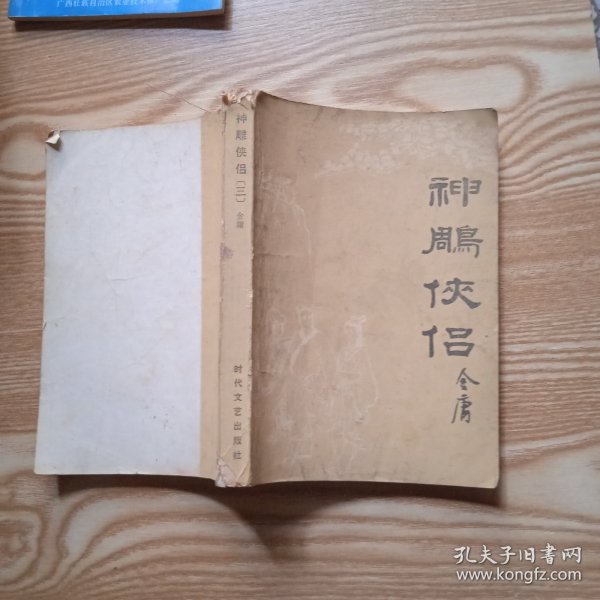 广西壮族自治区农业技术推广总站
神雕侠侣
〔三〕
金庸
时代文艺出版社
神鵰俠侣
金庸
孔夫子旧书网
www.kongfz.com